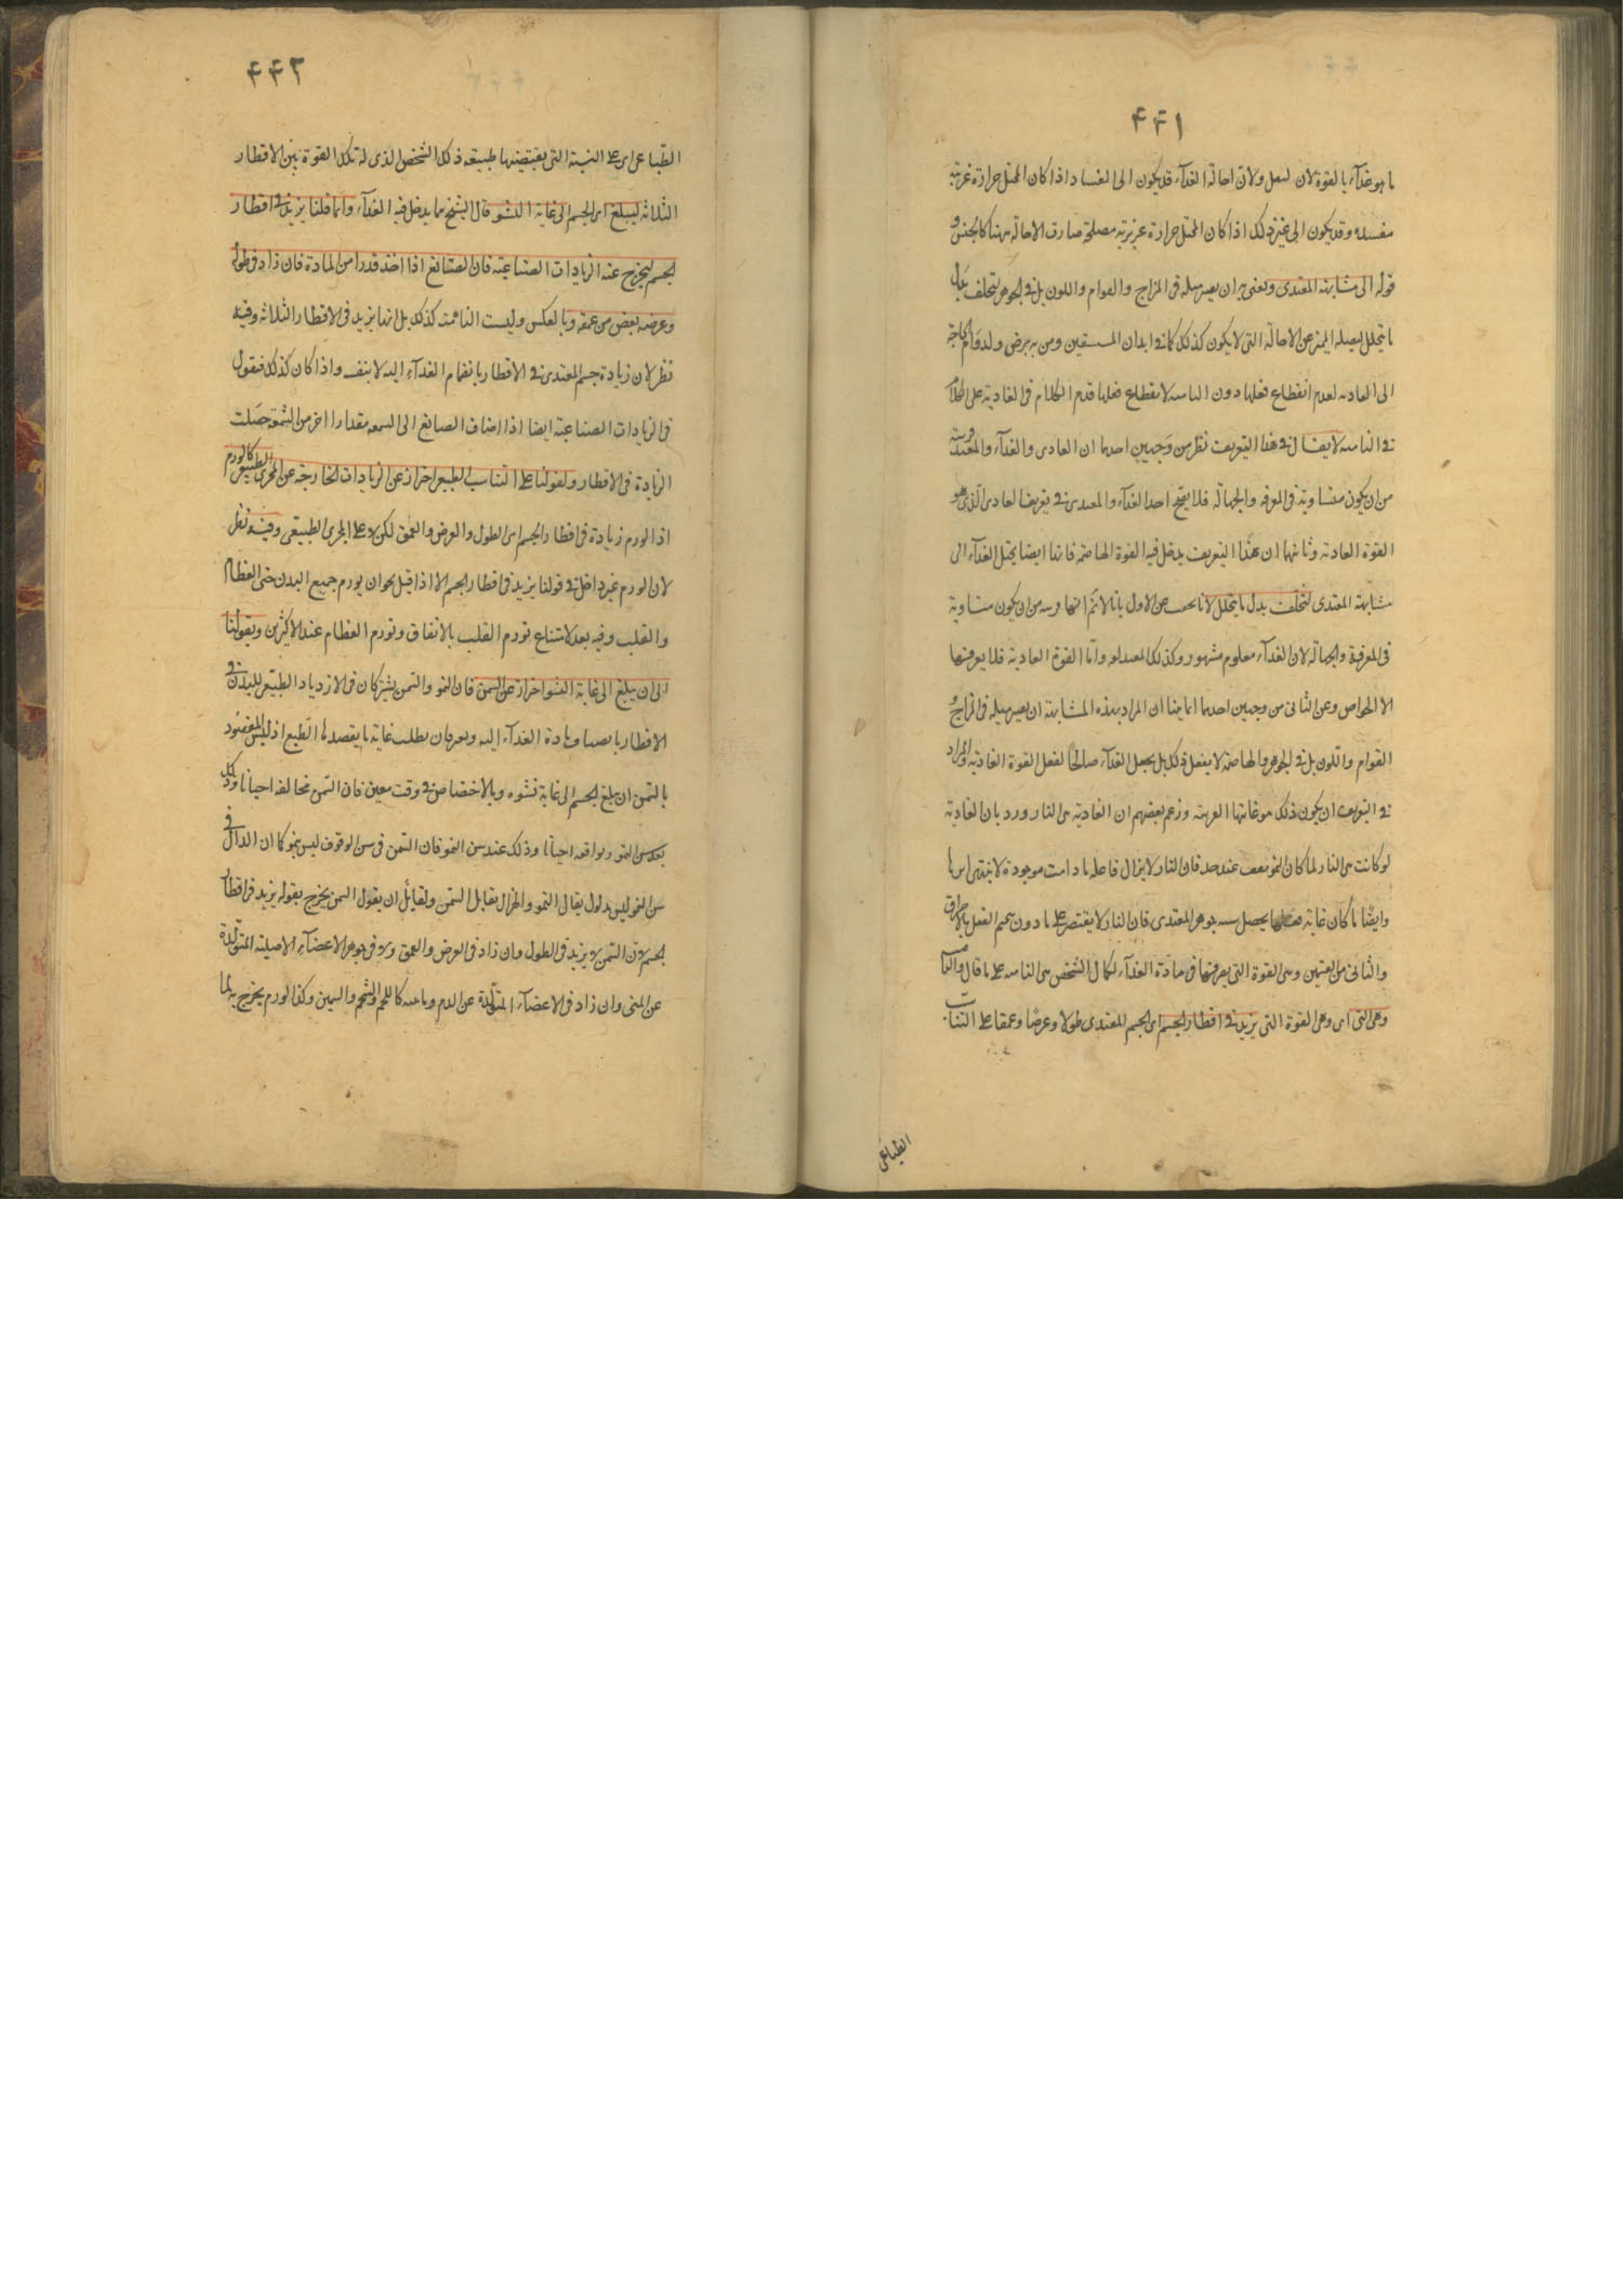 ۴۴۱
ما هو غذآء بالقوة لان لفعل ولان احالة الغذآء قد يكون الى الفساد اذا كان المحيل حرارة غريبة
مفسده وقد يكون الى غير ذلك اذا كان المحيل حرارة غريزية مصلحة صارت الاحالة ههنا كالجنس و
قوله الى مشابهة المغتدى ويعنى به ان يصير مثله فى المزاج والقوام واللون بل فى الجوهر لتخلف بدل
ما يتحلل ليصله المميز عن الاحالة التى لا يكون كذلك كما فى ابدان المستسقين ومن به برص ولدوام الحاجة
الى الغاديه لعدم انقطاع فعلها دون الناميه لانقطاع فعلها قدم الكلام فى الغادية على الكلام
فى الناميه لا يقال فى هذا التعريف نظر من وجهين احدهما ان الغادى والغذآء والمغتدى قريبة
من ان يكون متساوية فى المعرفه والجهالة فلا يصح اخذ الغذآء والمغتدى فى تعريف الغادى الذى هو
القوة الغاديه وثانيهما ان هذا التعريف يدخل فيه القوة الهاضمة فانها ايضا يحيل الغذآء الى
مشابهة المغتدى لتخلف بدل ما يتحلل لانا نجيب عن الاول بانا لا نم انها قريبه من ان يكون متساوية
فى المعرفة والجهالة لان الغذآء معلوم مشهور وكذلك المغتدى واما القوة الغادية فلا يعرفها
الا الخواص وعن الثانى من وجهين احدهما اما بينا ان المراد بهذه المشابهة ان يصير مثله فى المزاج و
القوام واللون بل فى الجوهر والهاضمة لا يفعل ذلك بل يجعل الغذآء صالحا لفعل القوة الغادية والمراد
فى التعريف ان يكون ذلك هو غايتها القريبه وزعم بعضهم ان الغادية هى النار ورد بان الغادية
لو كانت هى النار لما كان النمو يقف عند حد فان النار لا يزال فاعله ما دامت موجودة لا ينتهى اسرها
وايضا ما كان غاية فعلها يحصل شبيه جوهر المغتدى فان النار لا يقتصر على ما دون تتميم الفعل بالاحراق
والثانى من القسمين وهى القوة التى يصرفها فى مادة الغذآء لكمال الشخص هى الناميه على ما قال والناميه
وهى التى اى وهى القوة التى يزيد فى اقطار الجسم اى الجسم المغتدى طولا وعرضا وعمقا على التناسب
الطباعى
۴۴۲
الطباعى اى على النسبة التى يقتضيها طبيعة ذلك الشخص الذى له تلك القوة بين الاقطار
الثلاثة ليبلغ اى الجسم الى غاية النشو قال الشيخ بما يدخل فيه الغذآء وانما قلنا يزيد فى اقطار
الجسم ليخرج عنه الزيادات الصناعية فان الصانع اذا اخذ قدرا من المادة فان زاد فى طوله
وعرضه نقص من عمقه وبالعكس وليست النامية كذلك بل انها يزيد فى الاقطار الثلاثة وفيه
نظر لان زيادة جسم المغتدى فى الاقطار بانضمام الغذآء اليه لا بنفسه واذا كان كذلك فنقول
فى الزيادات الصناعية ايضا اذا اضاف الصانع الى الشمعه مقدارا اخر من الشمعة حصلت
الزيادة فى الاقطار وبقولنا على التناسب الطبيعى احتراز عن الزيادات الخارجة عن المجرى الطبيعى كالورم
اذ الورم زيادة فى اقطار الجسم اى الطول والعرض والعمق لكن لا على المجرى الطبيعى وفيه نظر
لان الورم غير داخل فى قولنا يزيد فى اقطار الجسم الا اذا قيل يجوز ان يورم جميع البدن حتى العظام
والقلب وفيه بعد لامتناع تورم القلب بالاتفاق وتورم العظام عند الاكثرين وبقولنا
الى ان يبلغ الى غاية النشو احتراز عن السمن فان النمو والسمن يشتركان فى الازدياد الطبيعى للبدن فى
الاقطار بانصباب مادة الغذآء اليه ويفترقان بطلب غاية ما يقصدها الطبع اذ ليس المقصود
بالسمن ان يبلغ الجسم الى غاية نشوه وبالاختصاص فى وقت معين فان السمن يخالفه احيانا وذلك
بعد سن النمو ويوافقه احيانا وذلك عند سن النمو فان السمن فى سن الوقوف ليس بنمو كما ان الهزال فى
سن النمو ليس بذبول يقابل النمو والهزال يقابل السمن ولقائل ان يقول السمن يخرج بقوله يزيد فى اقطار
الجسم لان السمن لا يزيد فى الطول وان زاد فى العرض والعمق ولا فى جوهر الاعضآء الاصلية المتولدة
عن المنى وان زاد فى الاعضآء المتولدة عن الدم ومائيته كاللحم والشحم والسمين وكذا الورم يخرج به لما